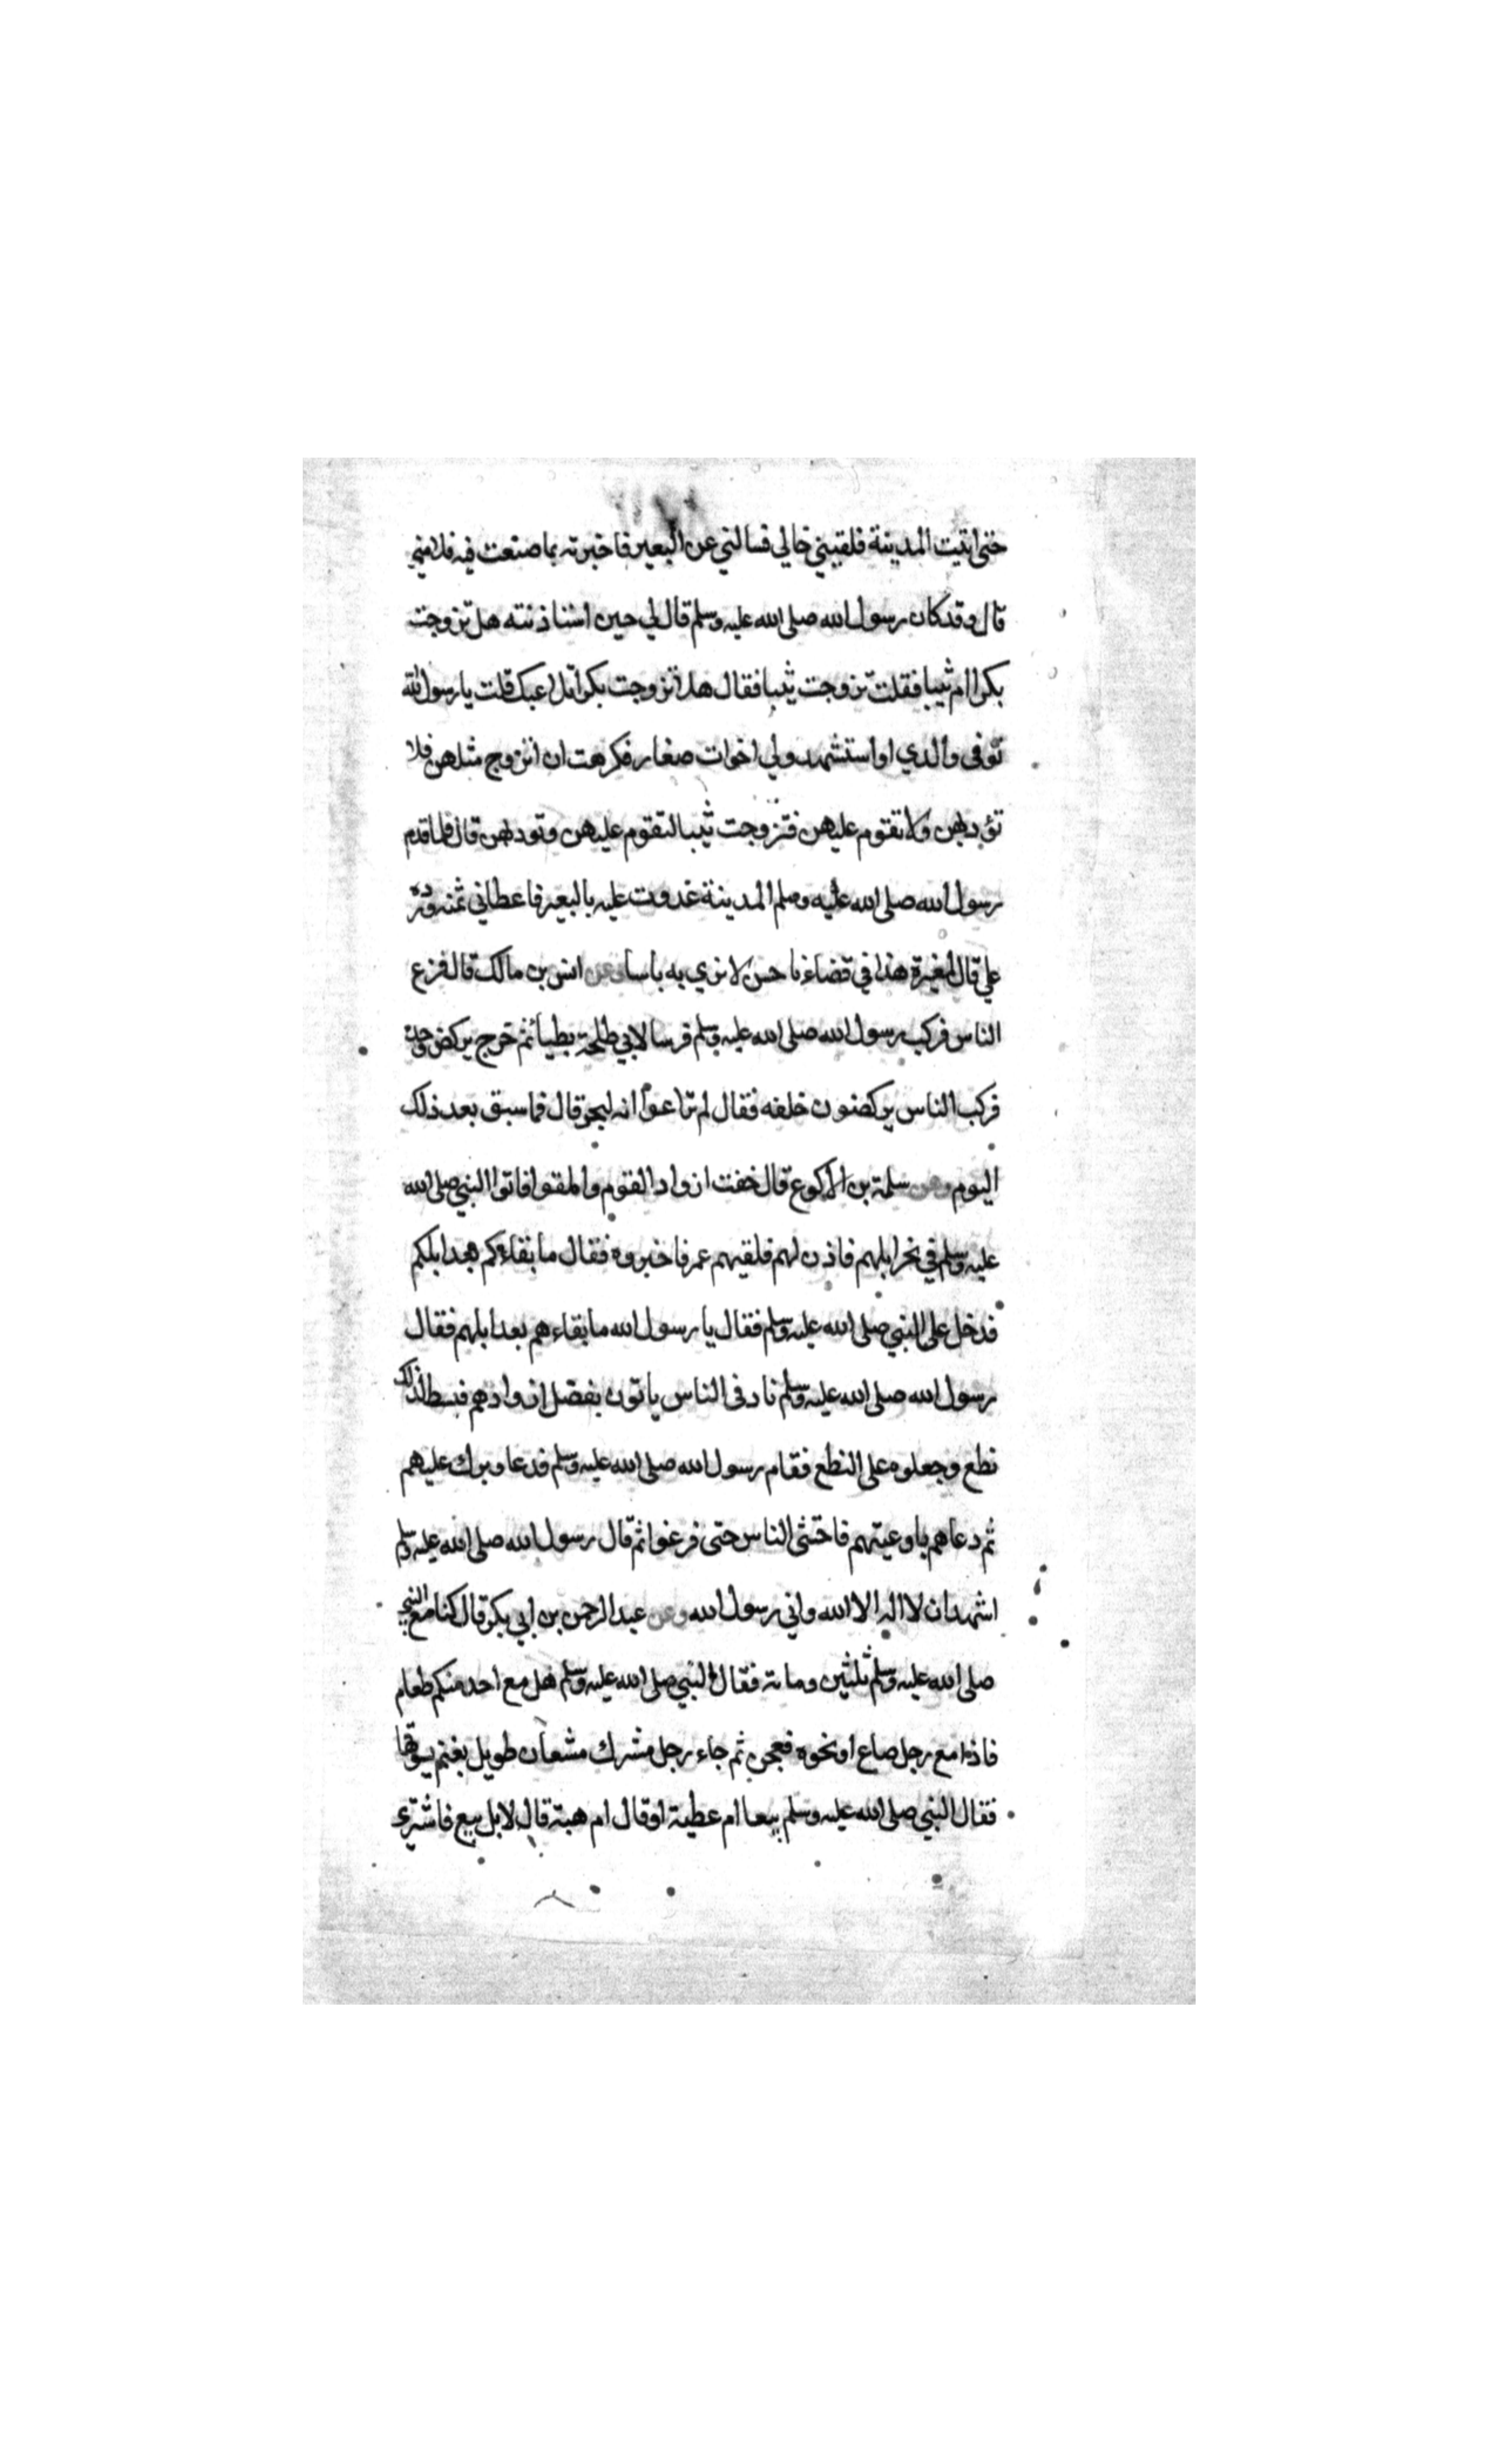 حتى اتيت المدينة فلقيني خالي فسالني عن البعير فاخبرته بما صنعت فيه فلامني
قال وقد كان رسول الله صلى الله عليه وسلم قال لي حين استاذنته هل تزوجت
بكرا ام ثيبا فقلت تزوجت ثيبا فقال هلا تزوجت بكرا تلاعبك قلت يا رسول الله
توفى والدي او استشهد ولي اخوات صغار فكرهت ان اتزوج مثلهن فلا
تؤدبهن ولا تقوم عليهن فتزوجت ثيبا لتقوم عليهن وتودبهن قال فلما قدم
رسول الله صلى الله عليه وسلم المدينة غدوت عليه بالبعير فاعطاني ثمنه ورده
علي قال المغيرة هذا في قضاءنا حسن لا نري به باسا وعن انس بن مالك قال فزع
الناس فركب رسول الله صلى الله عليه وسلم فرسا لابي طلحة بطيأ ثم خرج يركض وحده
فركب الناس يركضون خلفه فقال لم تراعوا انه لبحر قال فما سبق بعد ذلك
اليوم وعن سلمة بن الاكوع قال خفت ازواد القوم واملقوا فاتوا النبي صلى الله
عليه وسلم في نحر ابلهم فاذن لهم فلقيهم عمر فاخبروه فقال ما بقاءكم بعد ابلكم
فدخل على النبي صلى الله عليه وسلم فقال يا رسول الله ما بقاءهم بعد ابلهم فقال
رسول الله صلى الله عليه وسلم ناد فى الناس ياتون بفضل ازوادهم فبسط لذلك
نطع وجعلوه على النطع فقام رسول الله صلى الله عليه وسلم فدعا وبرك عليهم
ثم دعاهم باوعيتهم فاحتثى الناس حتى فرغوا ثم قال رسول الله صلى الله عليه وسلم
اشهد ان لا اله الا الله واني رسول الله وعن عبد الرحمن بن ابي بكر قال كنا مع النبي
صلى الله عليه وسلم ثلثين ومائة فقال النبي صلى الله عليه وسلم هل مع احد منكم طعام
فاذا مع رجل صاع او نحوه فعجن ثم جاء رجل مشرك مشعان طويل بغنم يسوقها
فقال النبي صلى الله عليه وسلم بيعا ام عطية او قال ام هبة قال لا بل بيع فاشترى